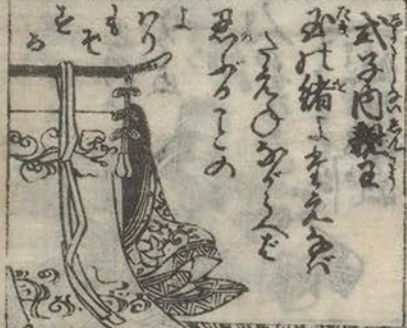 式子内親王
玉の緒よたえなば
たえねながらへば
忍ぶることの
よ
わり
も
ぞ
す
る